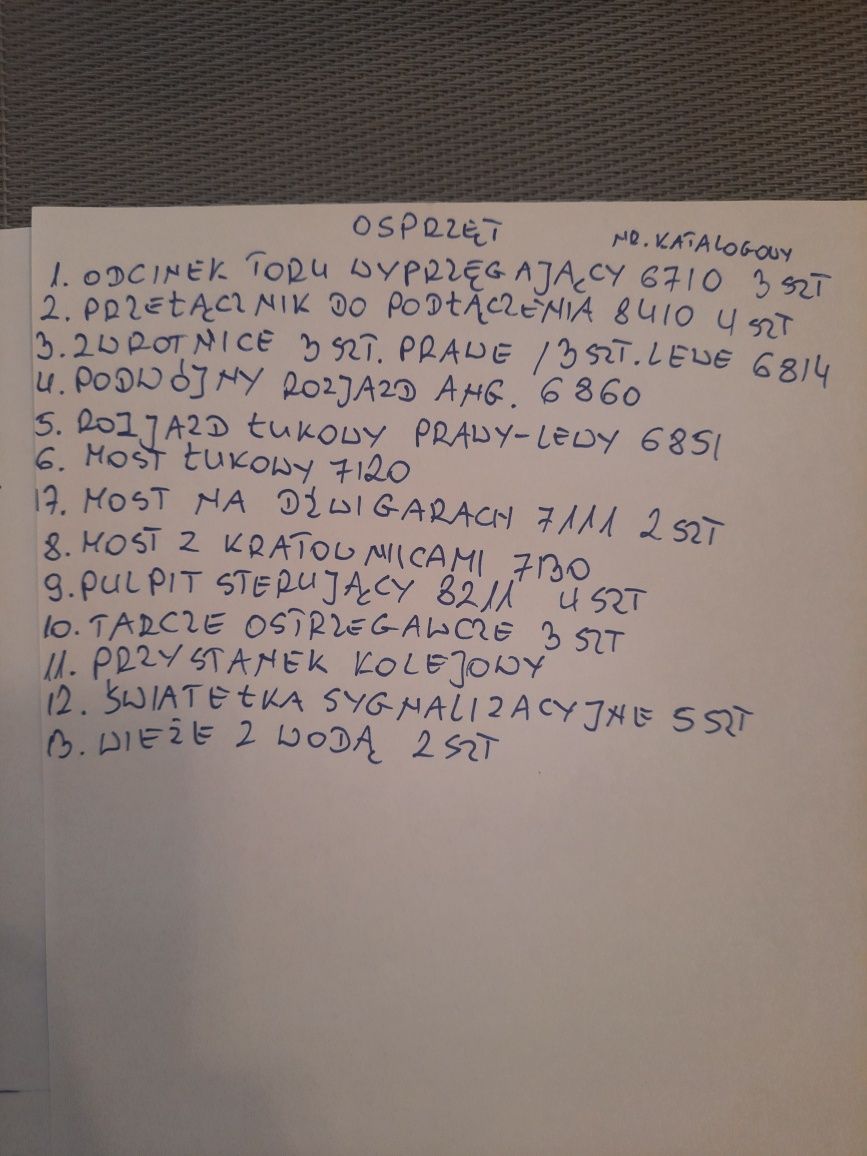 OSPRZĘT
NR. KATALOGOWY
1. ODCINEK TORU WYPRZĘGAJĄCY 6710 3 SZT
2. PRZEŁĄCZNIK DO PODŁĄCZENIA 8410 4 SZT
3. ZWROTNICE 3 SZT. PRAWE / 3 SZT. LEWE 6814
4. PODWÓJNY ROZJAZD ANG. 6860
5. ROZJAZD ŁUKOWY PRAWY-LEWY 6851
6. MOST ŁUKOWY 7120
17. MOST NA DŹWIGARACH 7111 2 SZT
8. MOST Z KRATOWNICAMI 7130
9. PULPIT STERUJĄCY 8211 4 SZT
10. TARCZE OSTRZEGAWCZE 3 SZT
11. PRZYSTANEK KOLEJOWY
12. ŚWIATEŁKA SYGNALIZACYJNE 5 SZT
13. WIEŻE Z WODĄ 2 SZT